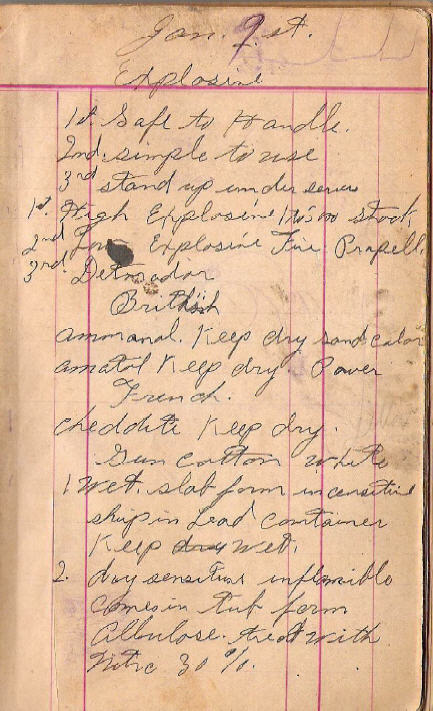 Jan. 9 st.
Explosive
1st. Safe to Handle.
2nd. simple to use
3rd stand up under
1st. High Explosive shock
2nd Explosive Fire Propell
3rd. Detonador
British
ammonal. Keep dry sand color
amatol Keep dry. Power
French.
cheddite Keep dry.
Gun cotton white
1 Wet. slab form insensitive
ship in Lead container
Keep dry Wet.
2. dry sensitive inflamible
comes in tub form
Cellulose. treat with
Nitric 30 %.